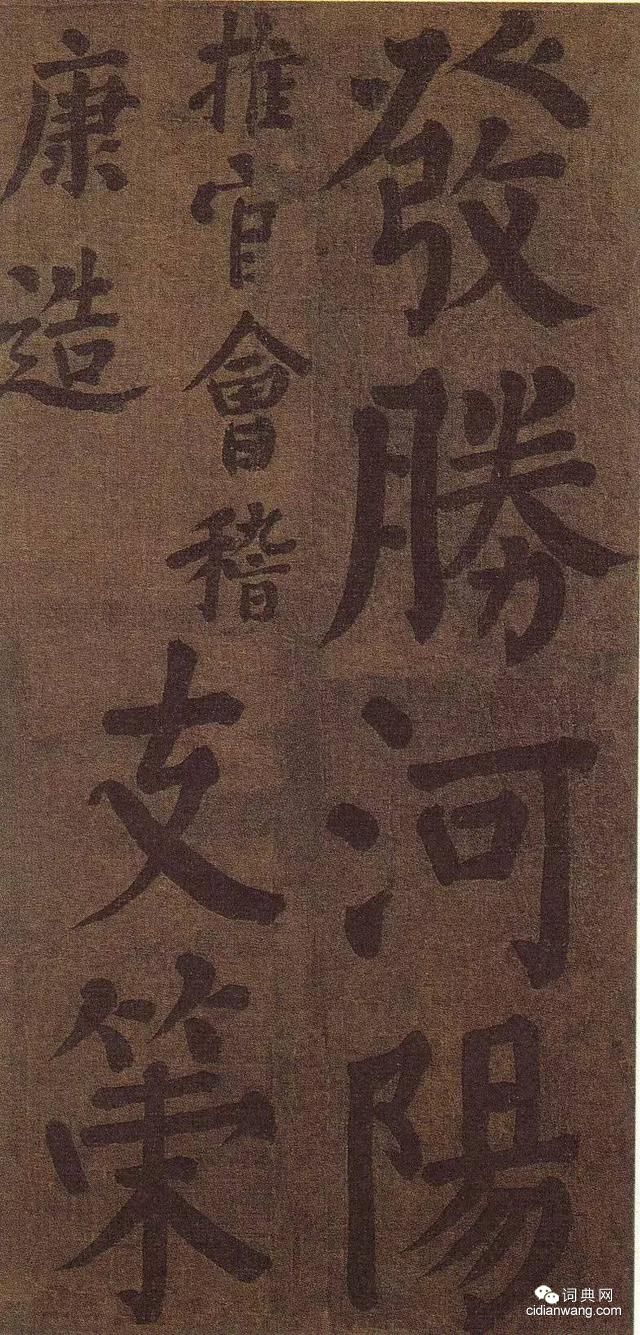 發勝河陽
推官會稽
支策
康造
词典网
cidianwang.com